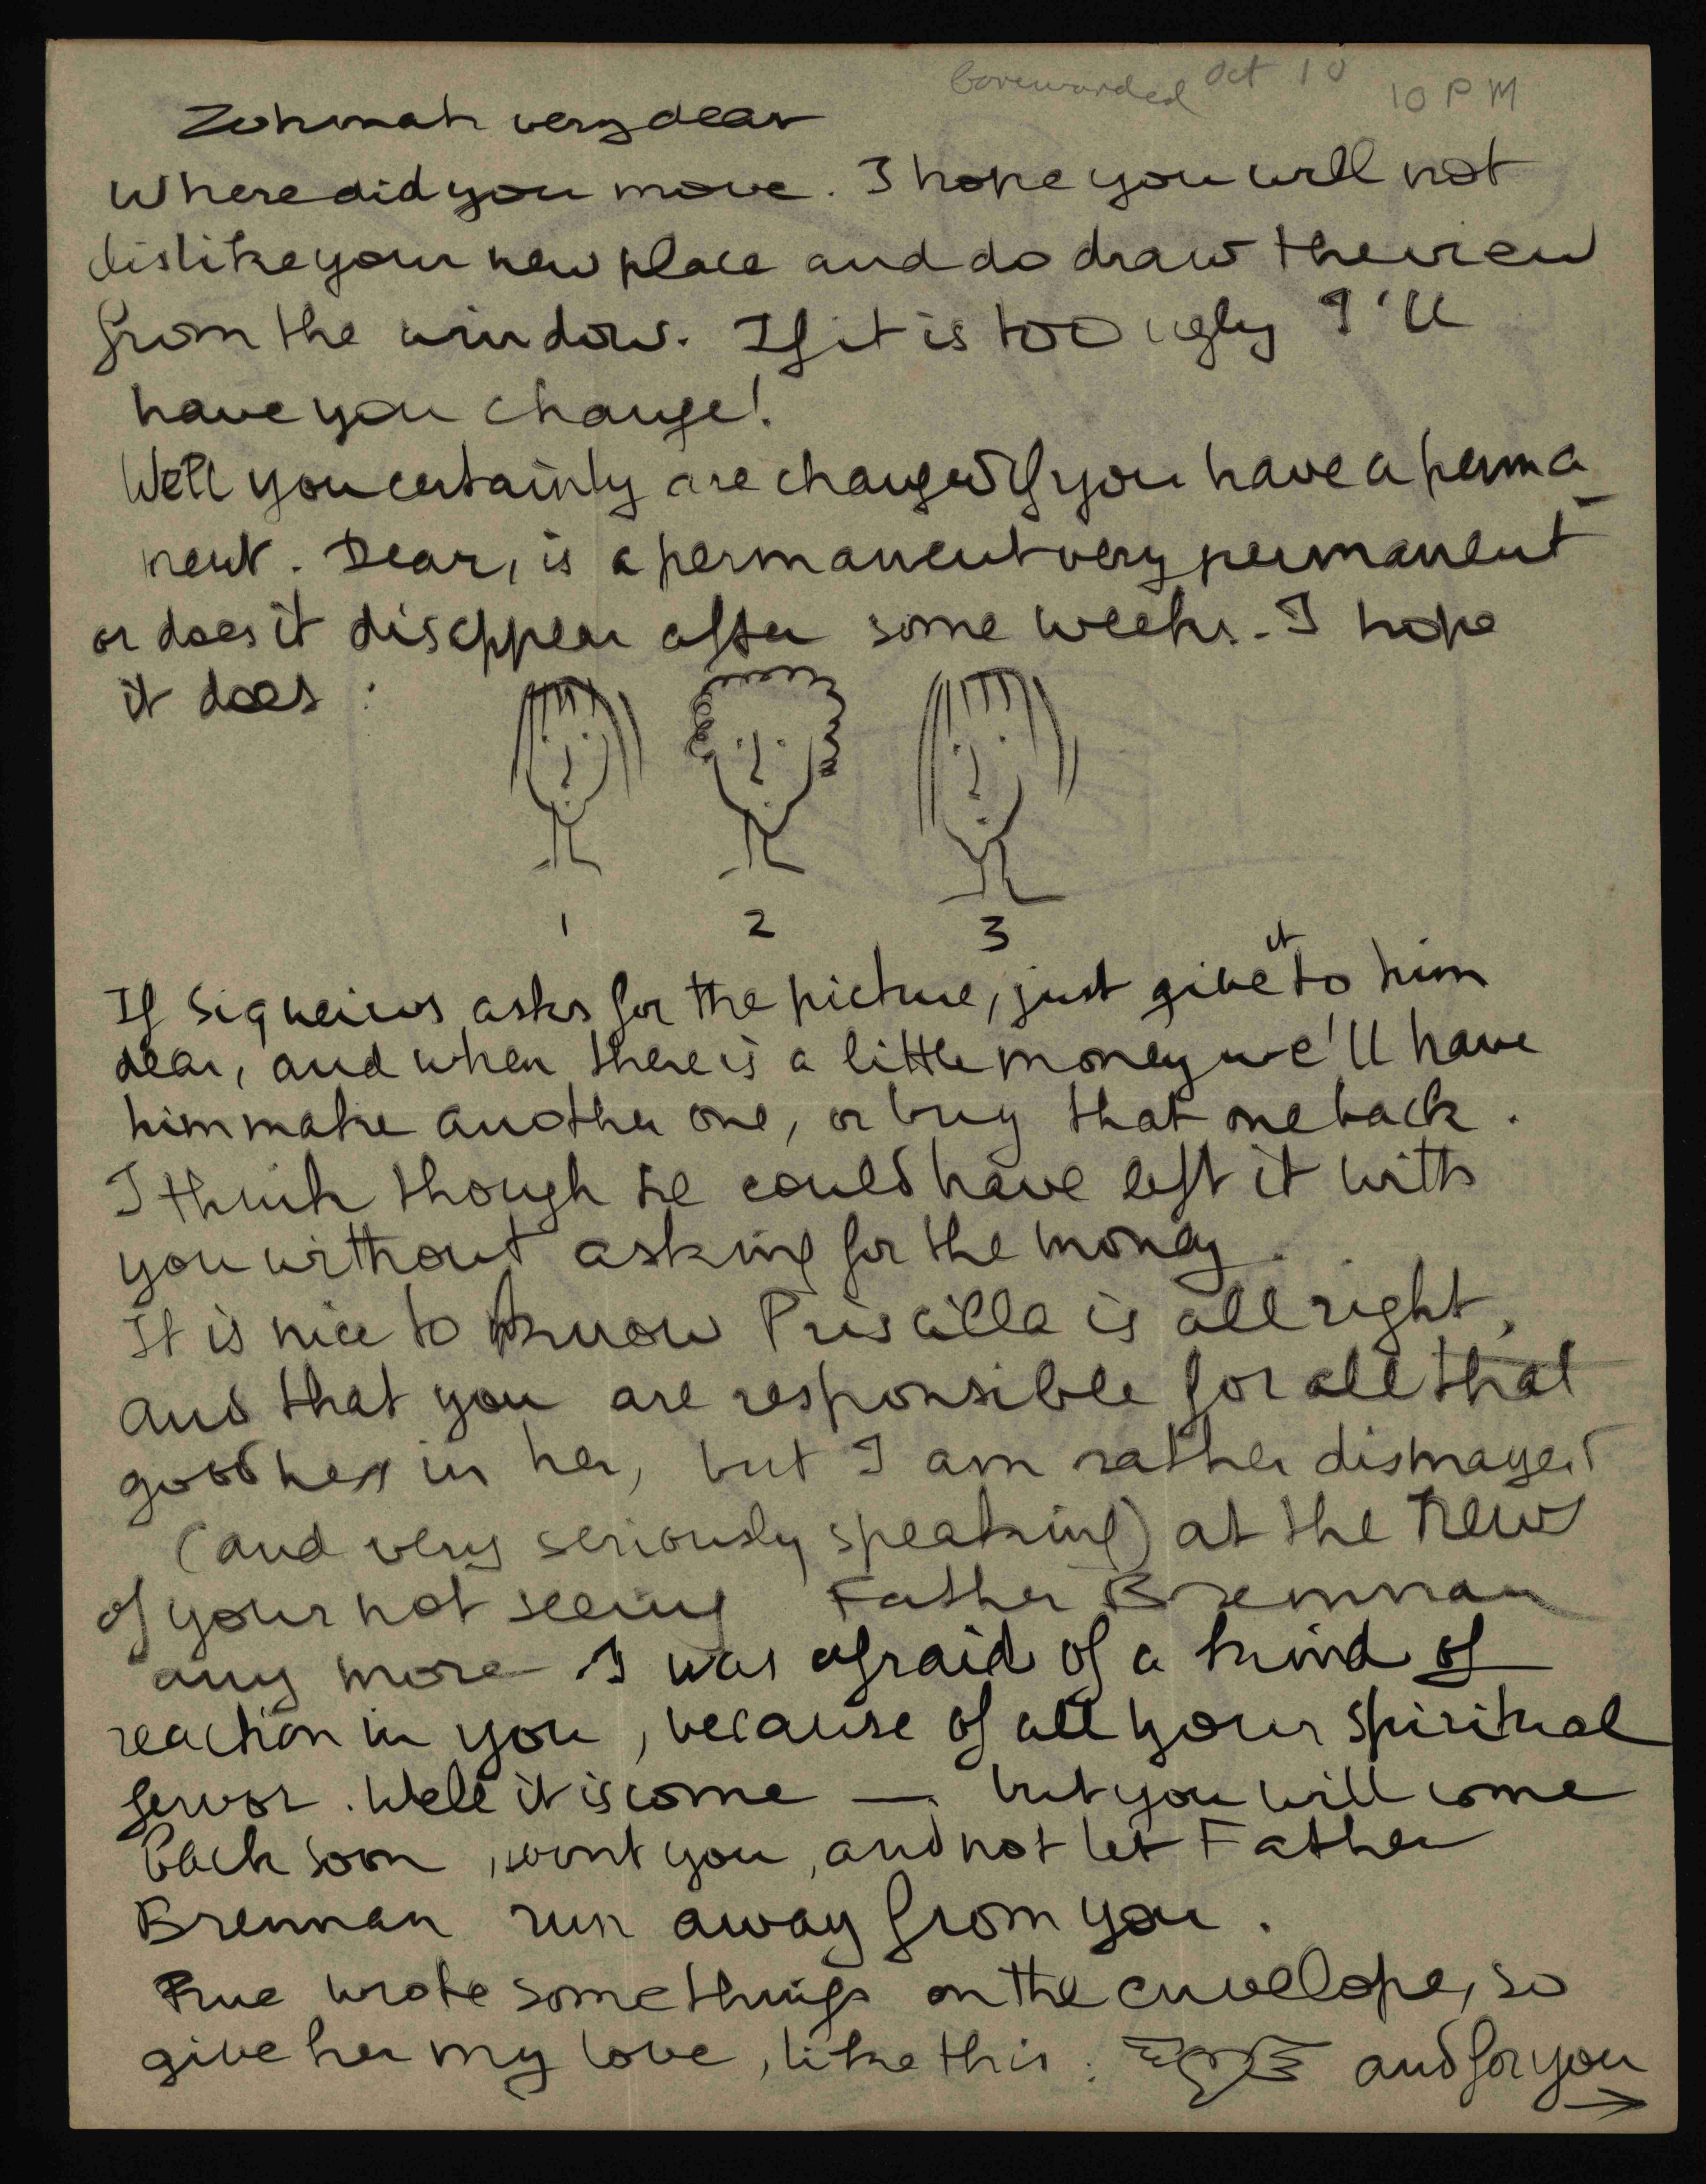 Oct 10 10 PM
Zohmah very dear
Where did you move. I hope you will not
dislike your new place and do draw the view
from the window. If it is too ugly I'll
have you change!
Well you certainly are changed if you have a perma-
nent. Dear, is a permanent very permanent
or does it disappear after some weeks. I hope
it does :
1 2 3
If Siqueiros asks for the picture, just give it to him
dear, and when there is a little money we'll have
him make another one, or buy that one back.
I think though he could have left it with
you without asking for the money.
It is nice to know Priscilla is all right,
and that you are responsible for all that
goodness in her, but I am rather dismayed
(and very seriously speaking) at the news
of your not seeing Father Brennan
any more I was afraid of a kind of
reaction in you, because of all your spiritual
fervor. Well it is come — but you will come
back soon, wont you, and not let Father
Brennan run away from you.
Prue wrote some things on the envelope, so
give her my love, like this : and for you
→